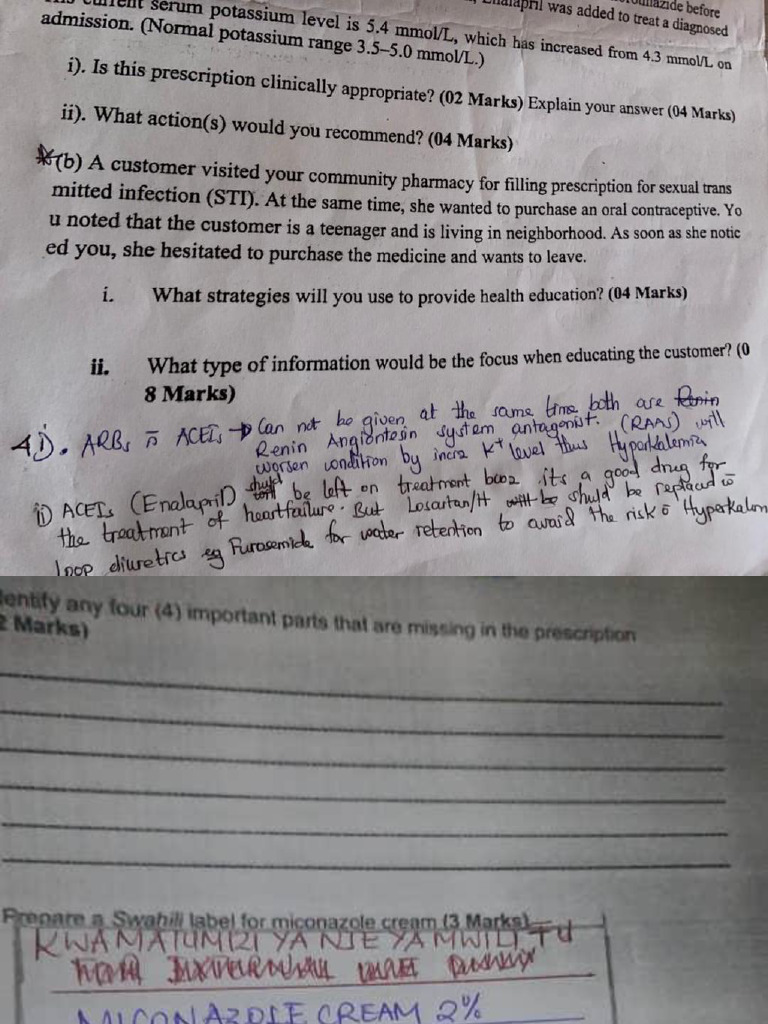 serum potassium level is 5.4 mmol/L, which has increased from 4.3 mmol/L on
was added to treat a diagnosed
before
admission. (Normal potassium range 3.5–5.0 mmol/L.)
i). Is this prescription clinically appropriate? (02 Marks) Explain your answer (04 Marks)
ii). What action(s) would you recommend? (04 Marks)
(b) A customer visited your community pharmacy for filling prescription for sexual trans
mitted infection (STI). At the same time, she wanted to purchase an oral contraceptive. Yo
u noted that the customer is a teenager and is living in neighborhood. As soon as she notic
ed you, she hesitated to purchase the medicine and wants to leave.
i. What strategies will you use to provide health education? (04 Marks)
ii. What type of information would be the focus when educating the customer? (0
8 Marks)
4 i). ARBs ACEIs → Can not be given at the same time both are
Renin Angiontosin system antagonist. (RAAS) will
worsen condition by incre K+ level thus Hyperkalemia
ii) ACEIs (Enalapril) shuld be left on treatment its a good drug for
the treatment of heartfailure. But Losartan/H shuld be replaced
loop diuretics eg Furosemide for water retention to avoid the risk Hyperkalem
dentify any four (4) important parts that are missing in the prescription
2 Marks)
Prepare a Swahili label for miconazole cream (3 Marks)
KWA MATUMIZI YA NJE YA MWILI TU
MICONAZOLE CREAM 2%